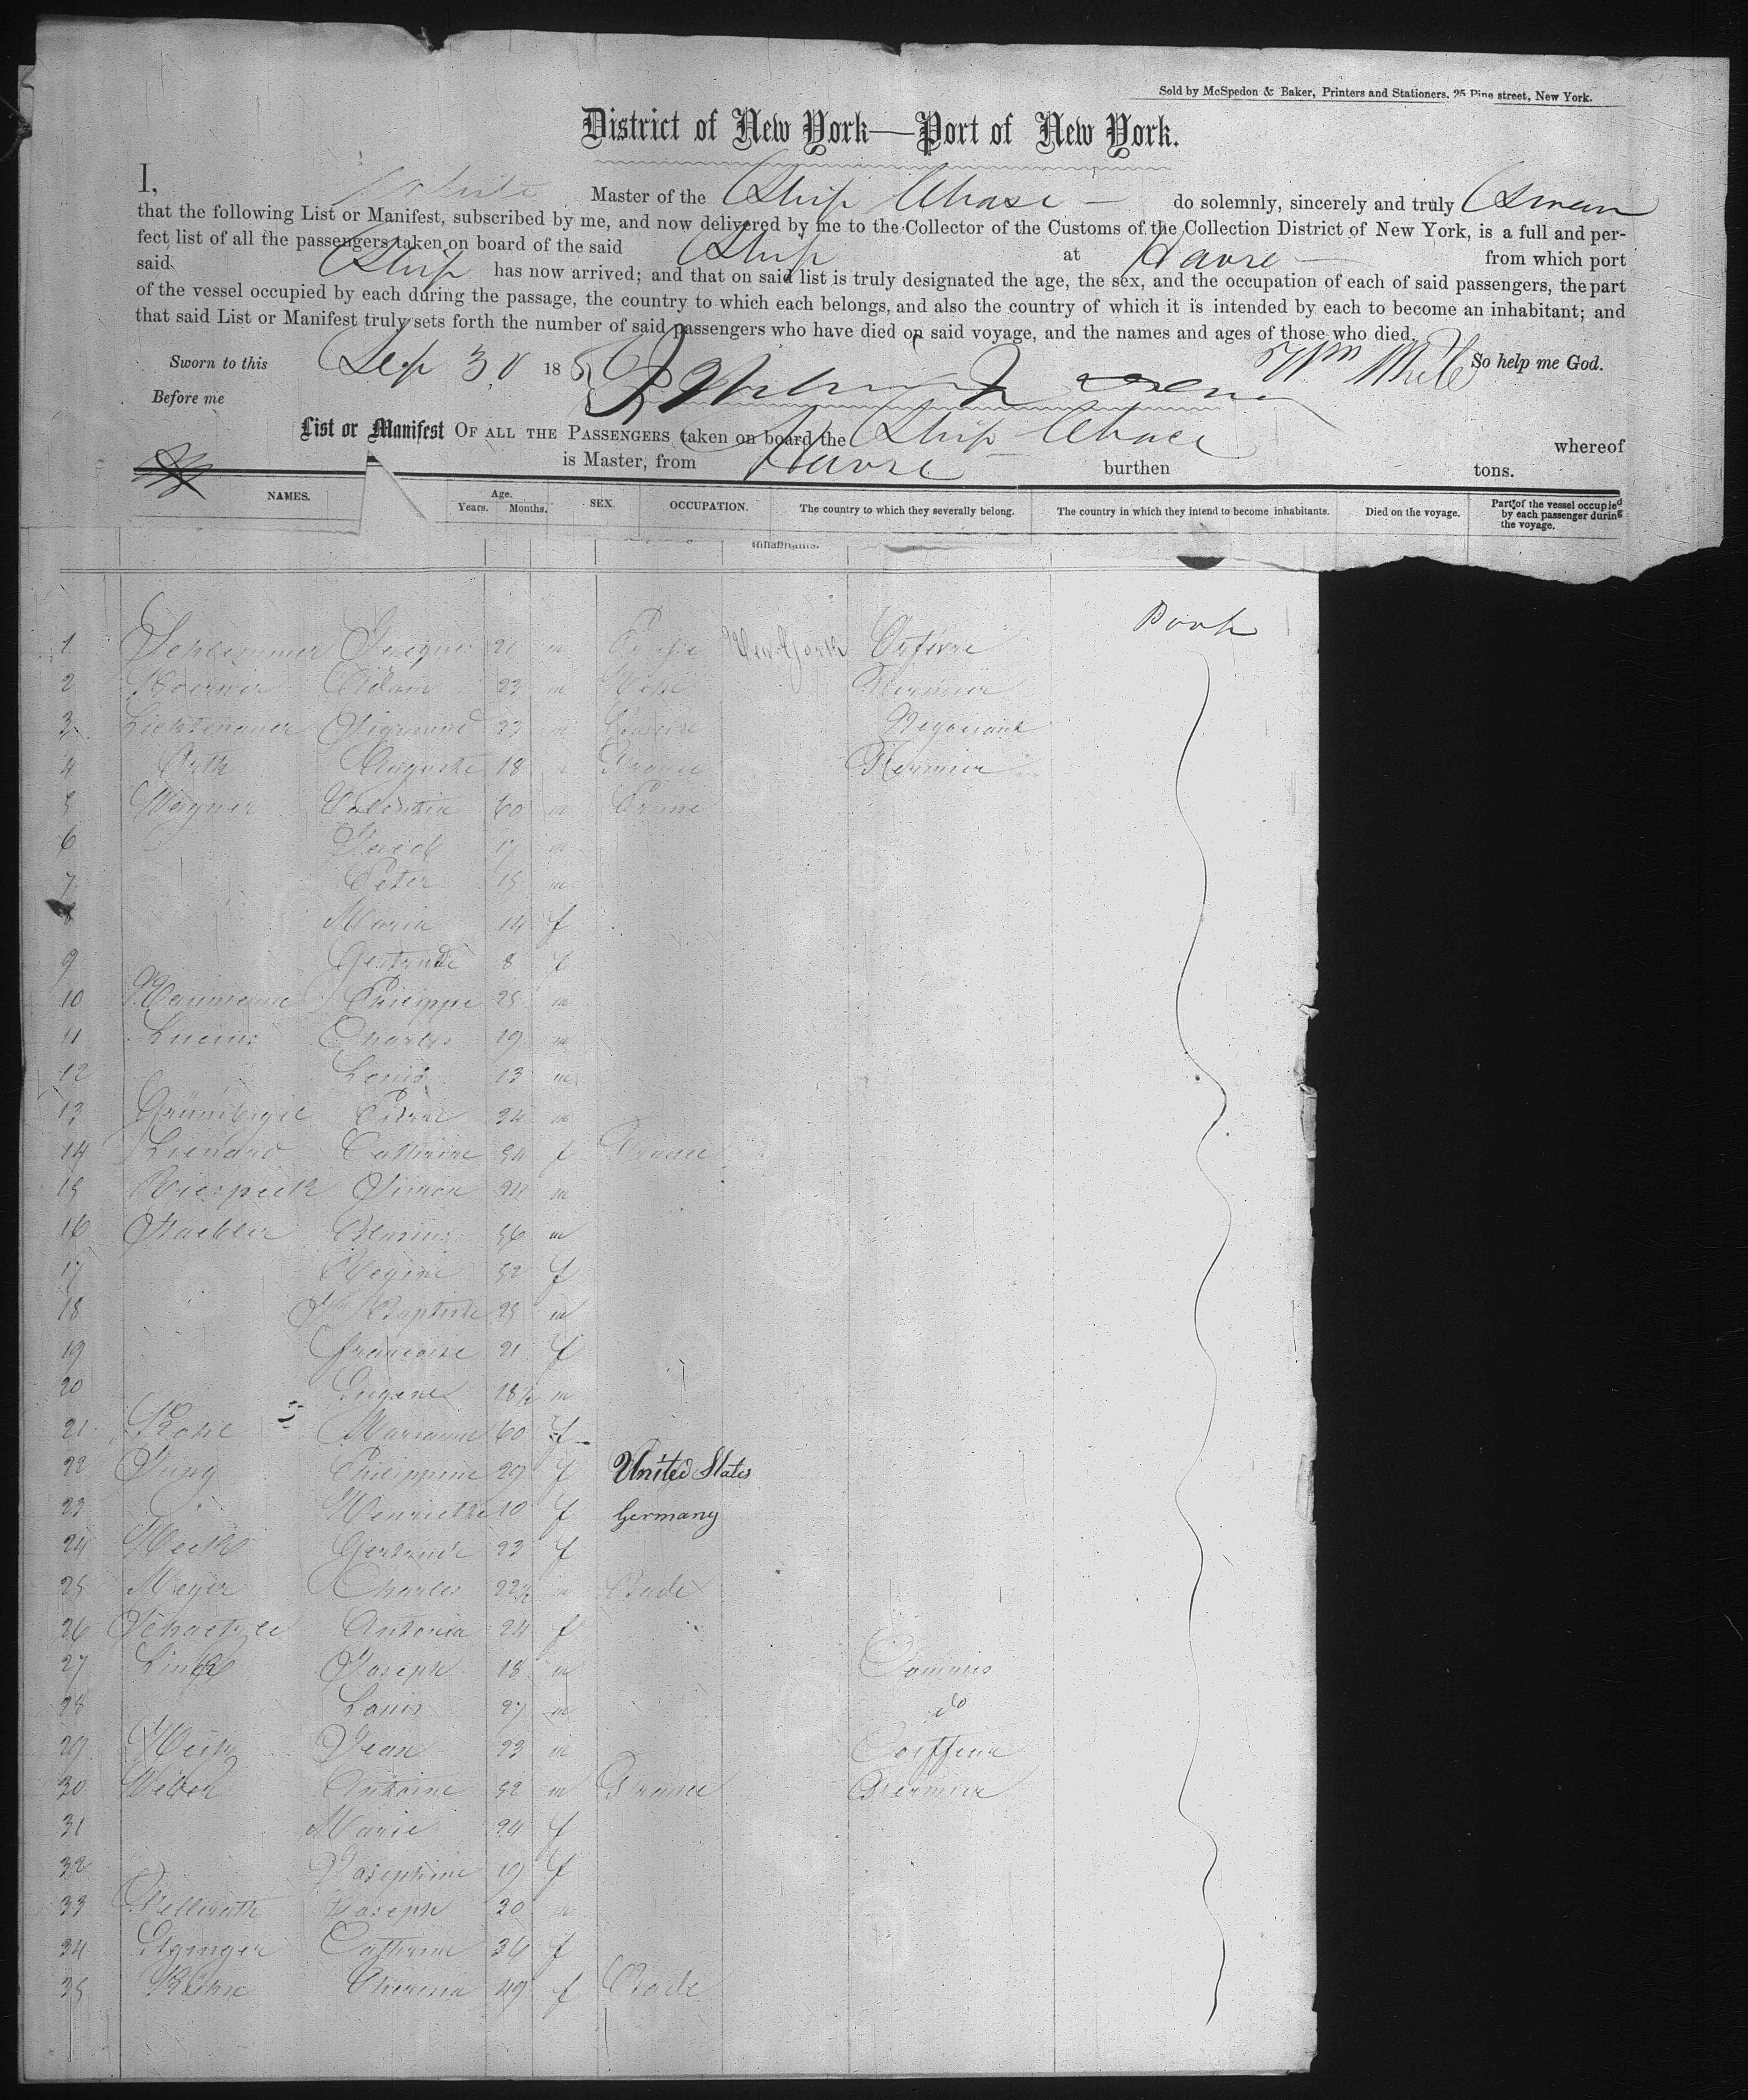 Sold by McSpedon & Baker, Printers and Stationers, 25 Pine street, New York.
District of New York—Port of New York.
I, White Master of the Ship Chase — do solemnly, sincerely and truly Swear
that the following List or Manifest, subscribed by me, and now delivered by me to the Collector of the Customs of the Collection District of New York, is a full and per-
fect list of all the passengers taken on board of the said Ship at Havre — from which port
said Ship has now arrived; and that on said list is truly designated the age, the sex, and the occupation of each of said passengers, the part
of the vessel occupied by each during the passage, the country to which each belongs, and also the country of which it is intended by each to become an inhabitant; and
that said List or Manifest truly sets forth the number of said passengers who have died on said voyage, and the names and ages of those who died.
Sworn to this Sep 30 185 Wm White So help me God.
Before me
List or Manifest OF ALL THE PASSENGERS taken on board the Ship Chace whereof
is Master, from Havre burthen tons.
NAMES. Age. Years. Months. SEX. OCCUPATION. The country to which they severally belong. The country in which they intend to become inhabitants. Died on the voyage. Part of the vessel occupied by each passenger during the voyage.
inhabitants.
1 Schlemmer Jacques 21 m New York Orfevre
2 Adam 22 m Fermier
3 Lichtenauer Sigmund 22 m Negociant
4 Auguste 18 France Fermier
5 Wagner Valentin 60 m Prusse
6 Jacob 17 m
7 Peter 15 m
8 Maria 14 f
9 Gertrude 8 f
10 Philippe 25 m
11 Lucius Charles 19 m
12 Louis 13 m
13 Pierre 24 m
14 Lienard Catherine 54 f France
15 Simon 24 m
16 Staebler 56 m
17 Regine 52 f
18 Jn Baptiste 25 m
19 Francoise 21 f
20 Eugene 18½ m
21 Marianne 60 f
22 Jung Philippine 29 f United States
23 Henriette 10 f Germany
24 Gertrude 23 f
25 Meyer Charles 22½ m Bade
26 Antonia 24 f
27 Link Joseph 18 m Commis
28 Louis 27 m do
29 Jean 23 m Coiffeur
30 Weber Antoine 52 m France Fermier
31 Marie 24 f
32 Josephine 19 f
33 Joseph 20 m
34 Catherine 26 f
35 Theresia 49 f Bade